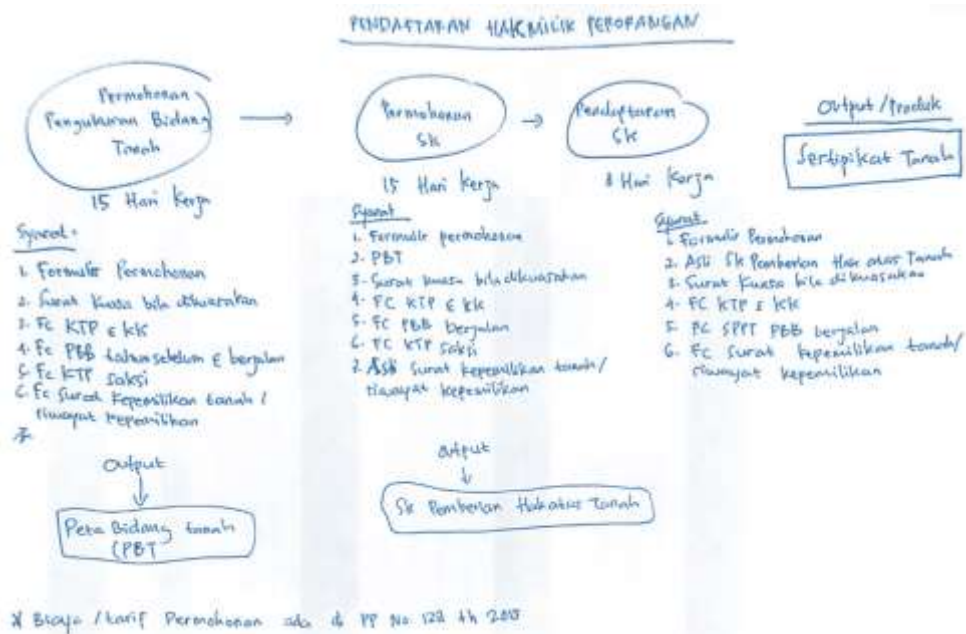 PENDAFTARAN HAK MILIK PERORANGAN
Permohonan
Pengukuran Bidang
Tanah
15 Hari Kerja
Syarat:
1. Formulir Permohonan
2. Surat Kuasa bila dikuasakan
3. Fc KTP & KK
4. Fc PBB tahun sebelum & berjalan
5. Fc KTP saksi
6. Fc Surat Kepemilikan tanah /
riwayat kepemilikan
Output
Peta Bidang tanah
(PBT
Permohonan
SK
15 Hari Kerja
Syarat
1. Formulir permohonan
2. PBT
3. Surat kuasa bila dikuasakan
4. FC KTP & KK
5. FC PBB berjalan
6. FC KTP saksi
7. Asli Surat kepemilikan tanah/
riwayat kepemilikan
output
SK Pemberian Hak atas Tanah
Pendaftaran
SK
8 Hari Kerja
Output/Produk
Sertipikat Tanah
Syarat
1. Formulir Permohonan
2. Asli SK Pemberian Hak atas Tanah
3. Surat Kuasa bila dikuasakan
4. FC KTP & KK
5. FC SPPT PBB berjalan
6. FC Surat kepemilikan tanah/
riwayat kepemilikan
* Biaya / tarif Permohonan ada di PP No 128 th